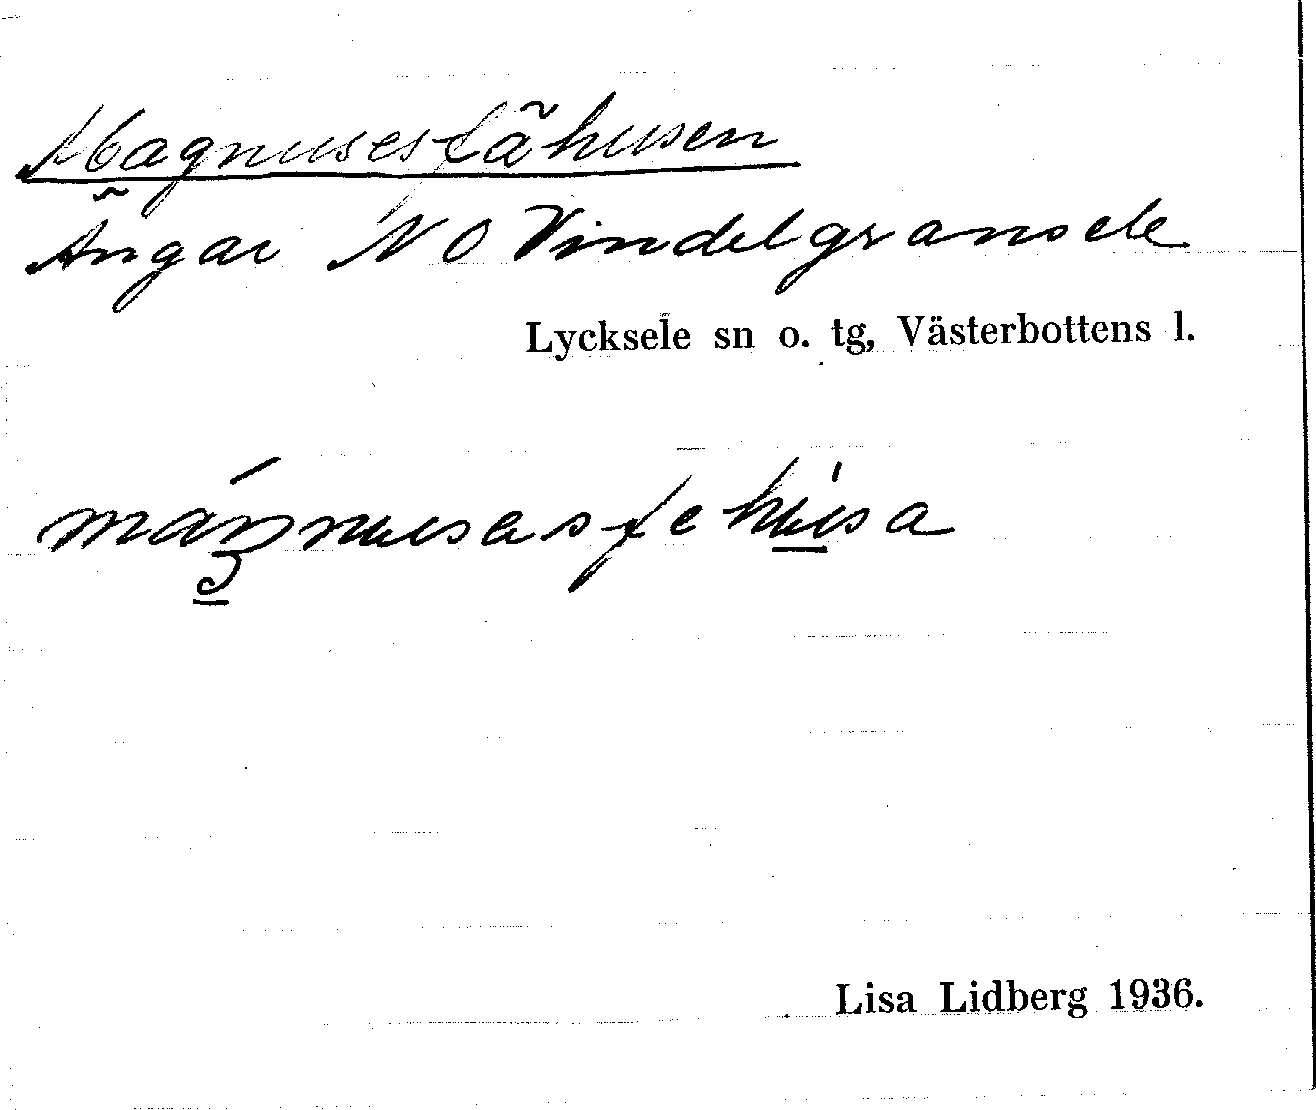 Magnusesfähusen
Ängar NO Vindelgransele
Lycksele sn o. tg, Västerbottens l.
máŋnusasfehúsa
Lisa Lidberg 1936.